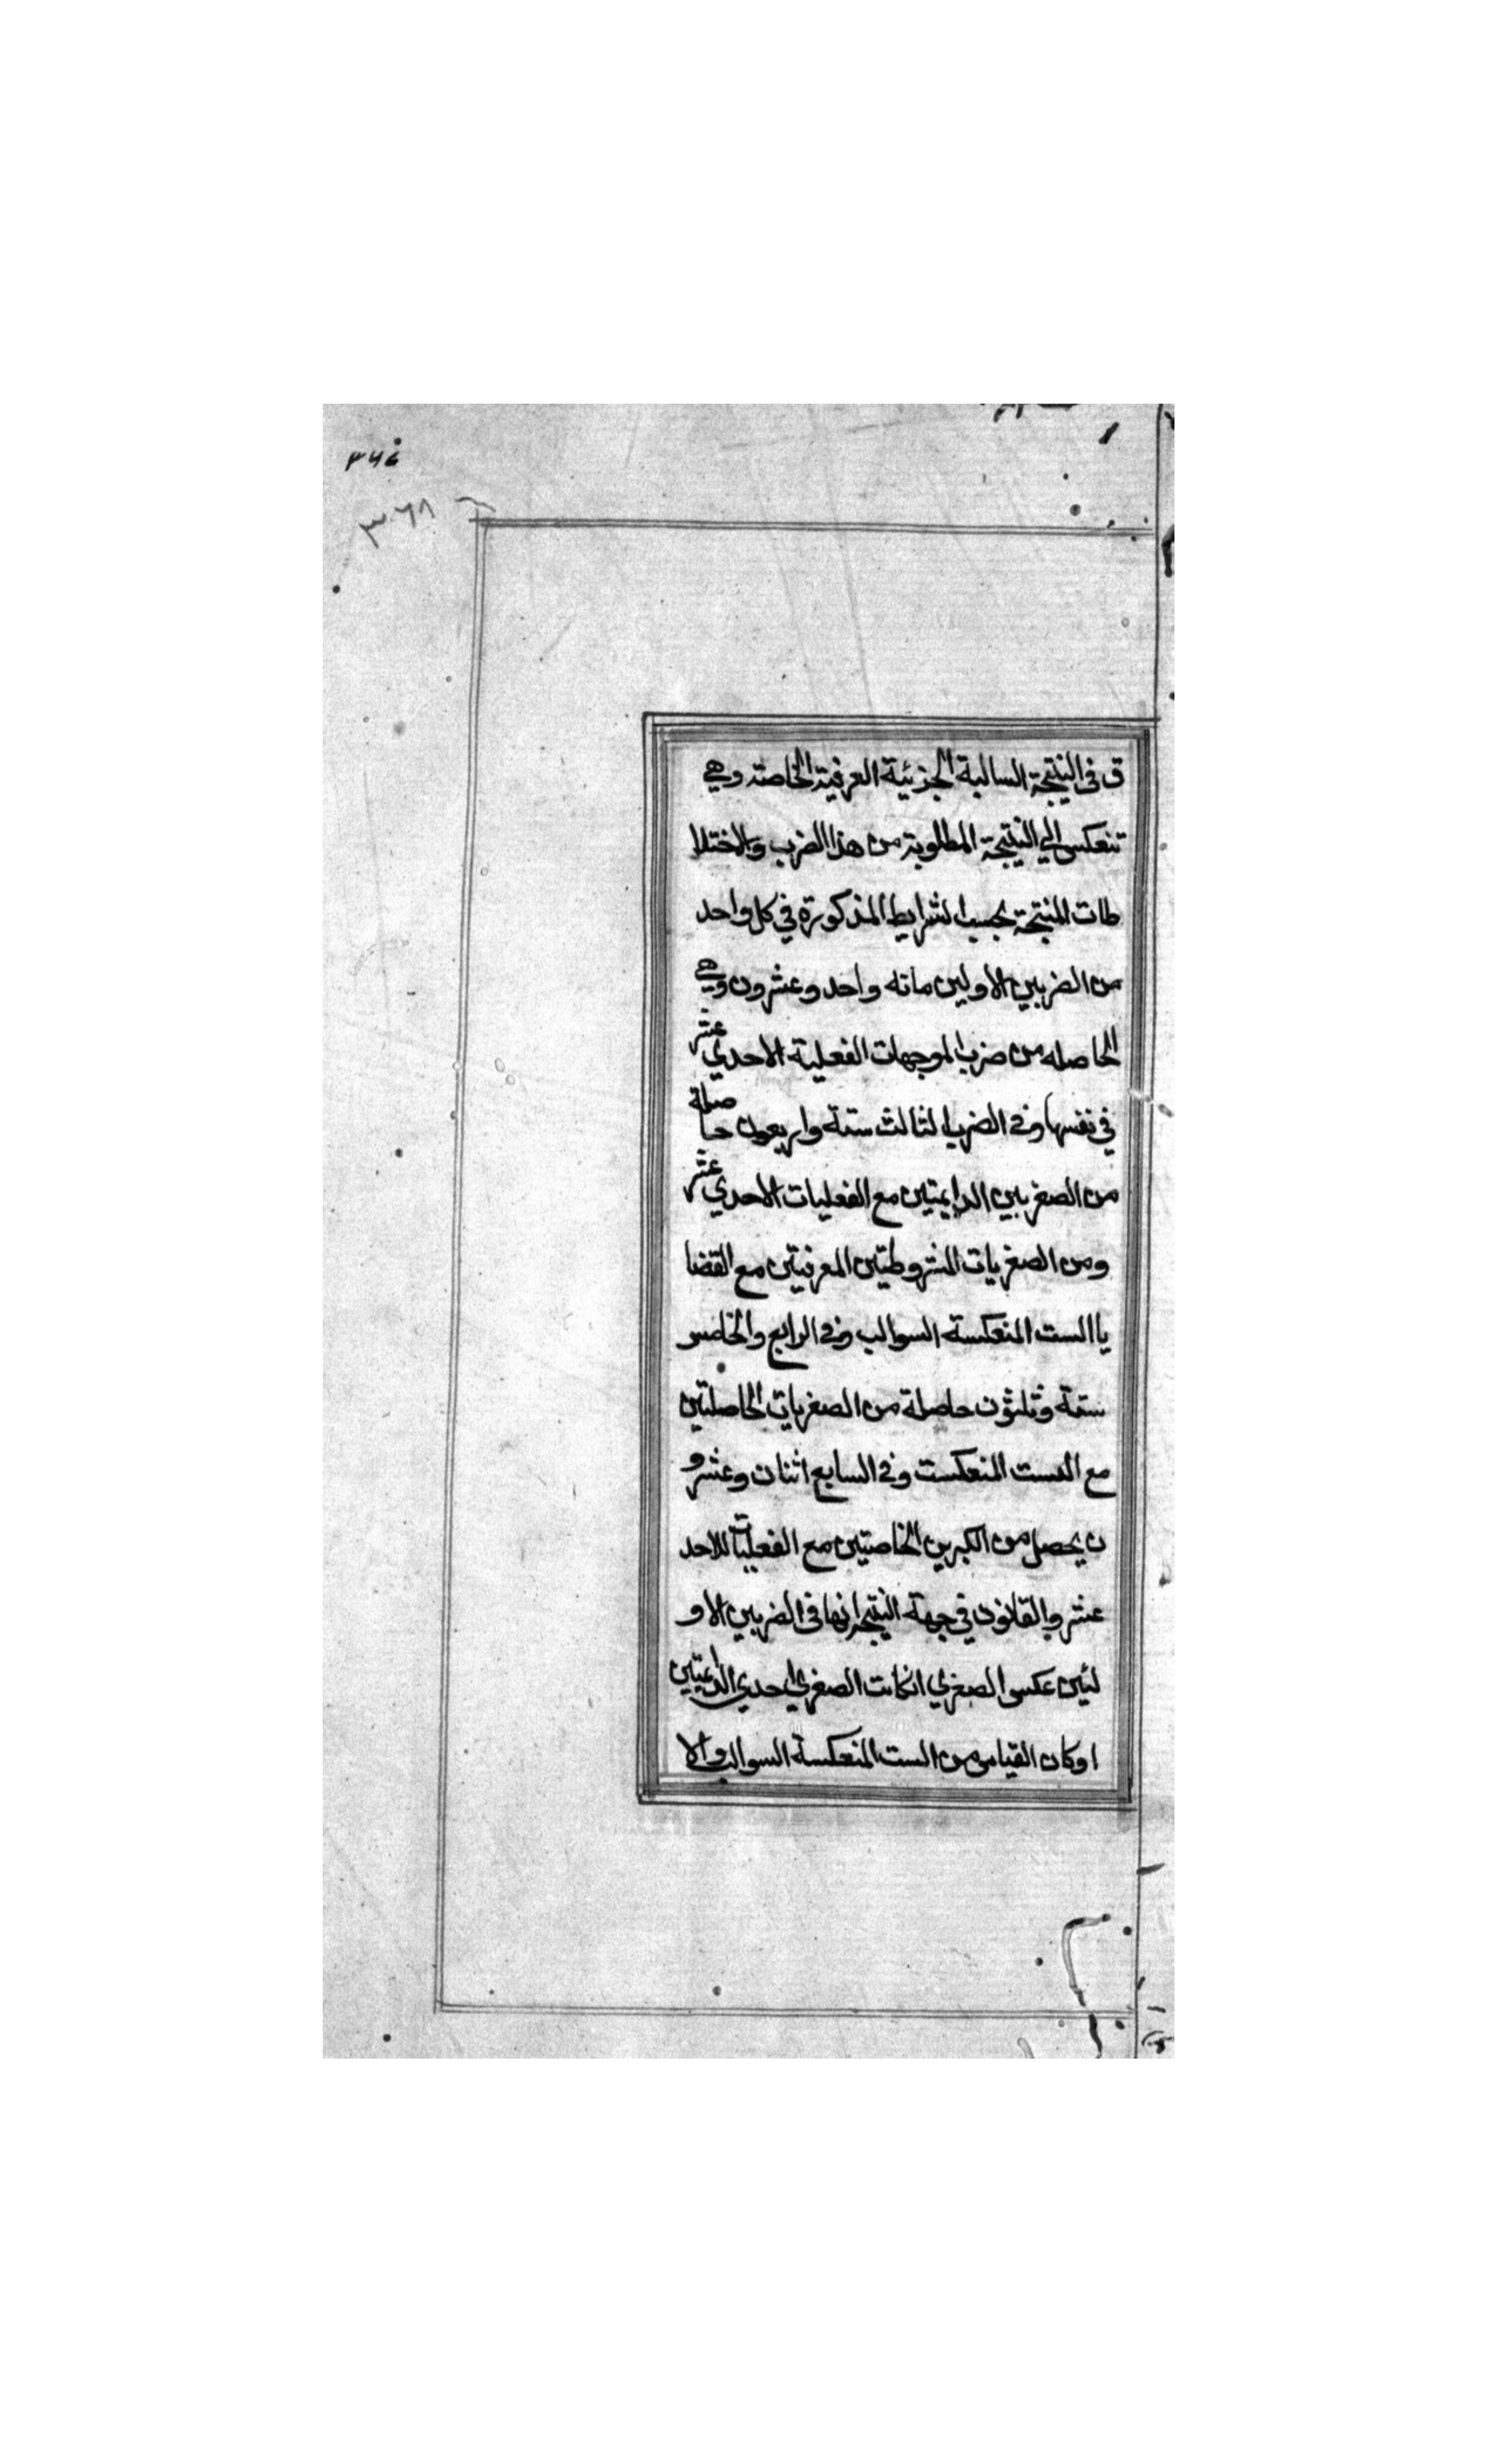 ٣٦٨
ق فى النتيجة السالبة الجزئية العرفية الخاصة وهي
تنعكس الي النتيجة المطلوبة من هذا الضرب والاختلا
طات المنتجة بحسب الشرايط المذكورة في كل واحد
من الضربين الاولين مائه واحد وعشرون وهي
الحاصله من ضرب الموجهات الفعلية الاحدي عشر
في نفسها وفى الضرب الثالث ستة واربعون حاصلة
من الصغريين الدايمتين مع الفعليات الاحدي عشر
ومن الصغريات المشروطتين العرفيتين مع القضا
يا الست المنعكسة السوالب وفى الرابع والخامس
ستة وثلثون حاصلة من الصغريات الحاصلتين
مع الست المنعكست وفى السابع اثنان وعشرو
ن يحصل من الكبرين الخاصتين مع الفعليات الاحد
عشر والقانون في جهة النتيجة انها فى الضربين الاو
لئين عكس الصغري انكانت الصغري احدي الدائمتين
اوكان القياس من الست المنعكسة السوالب والا